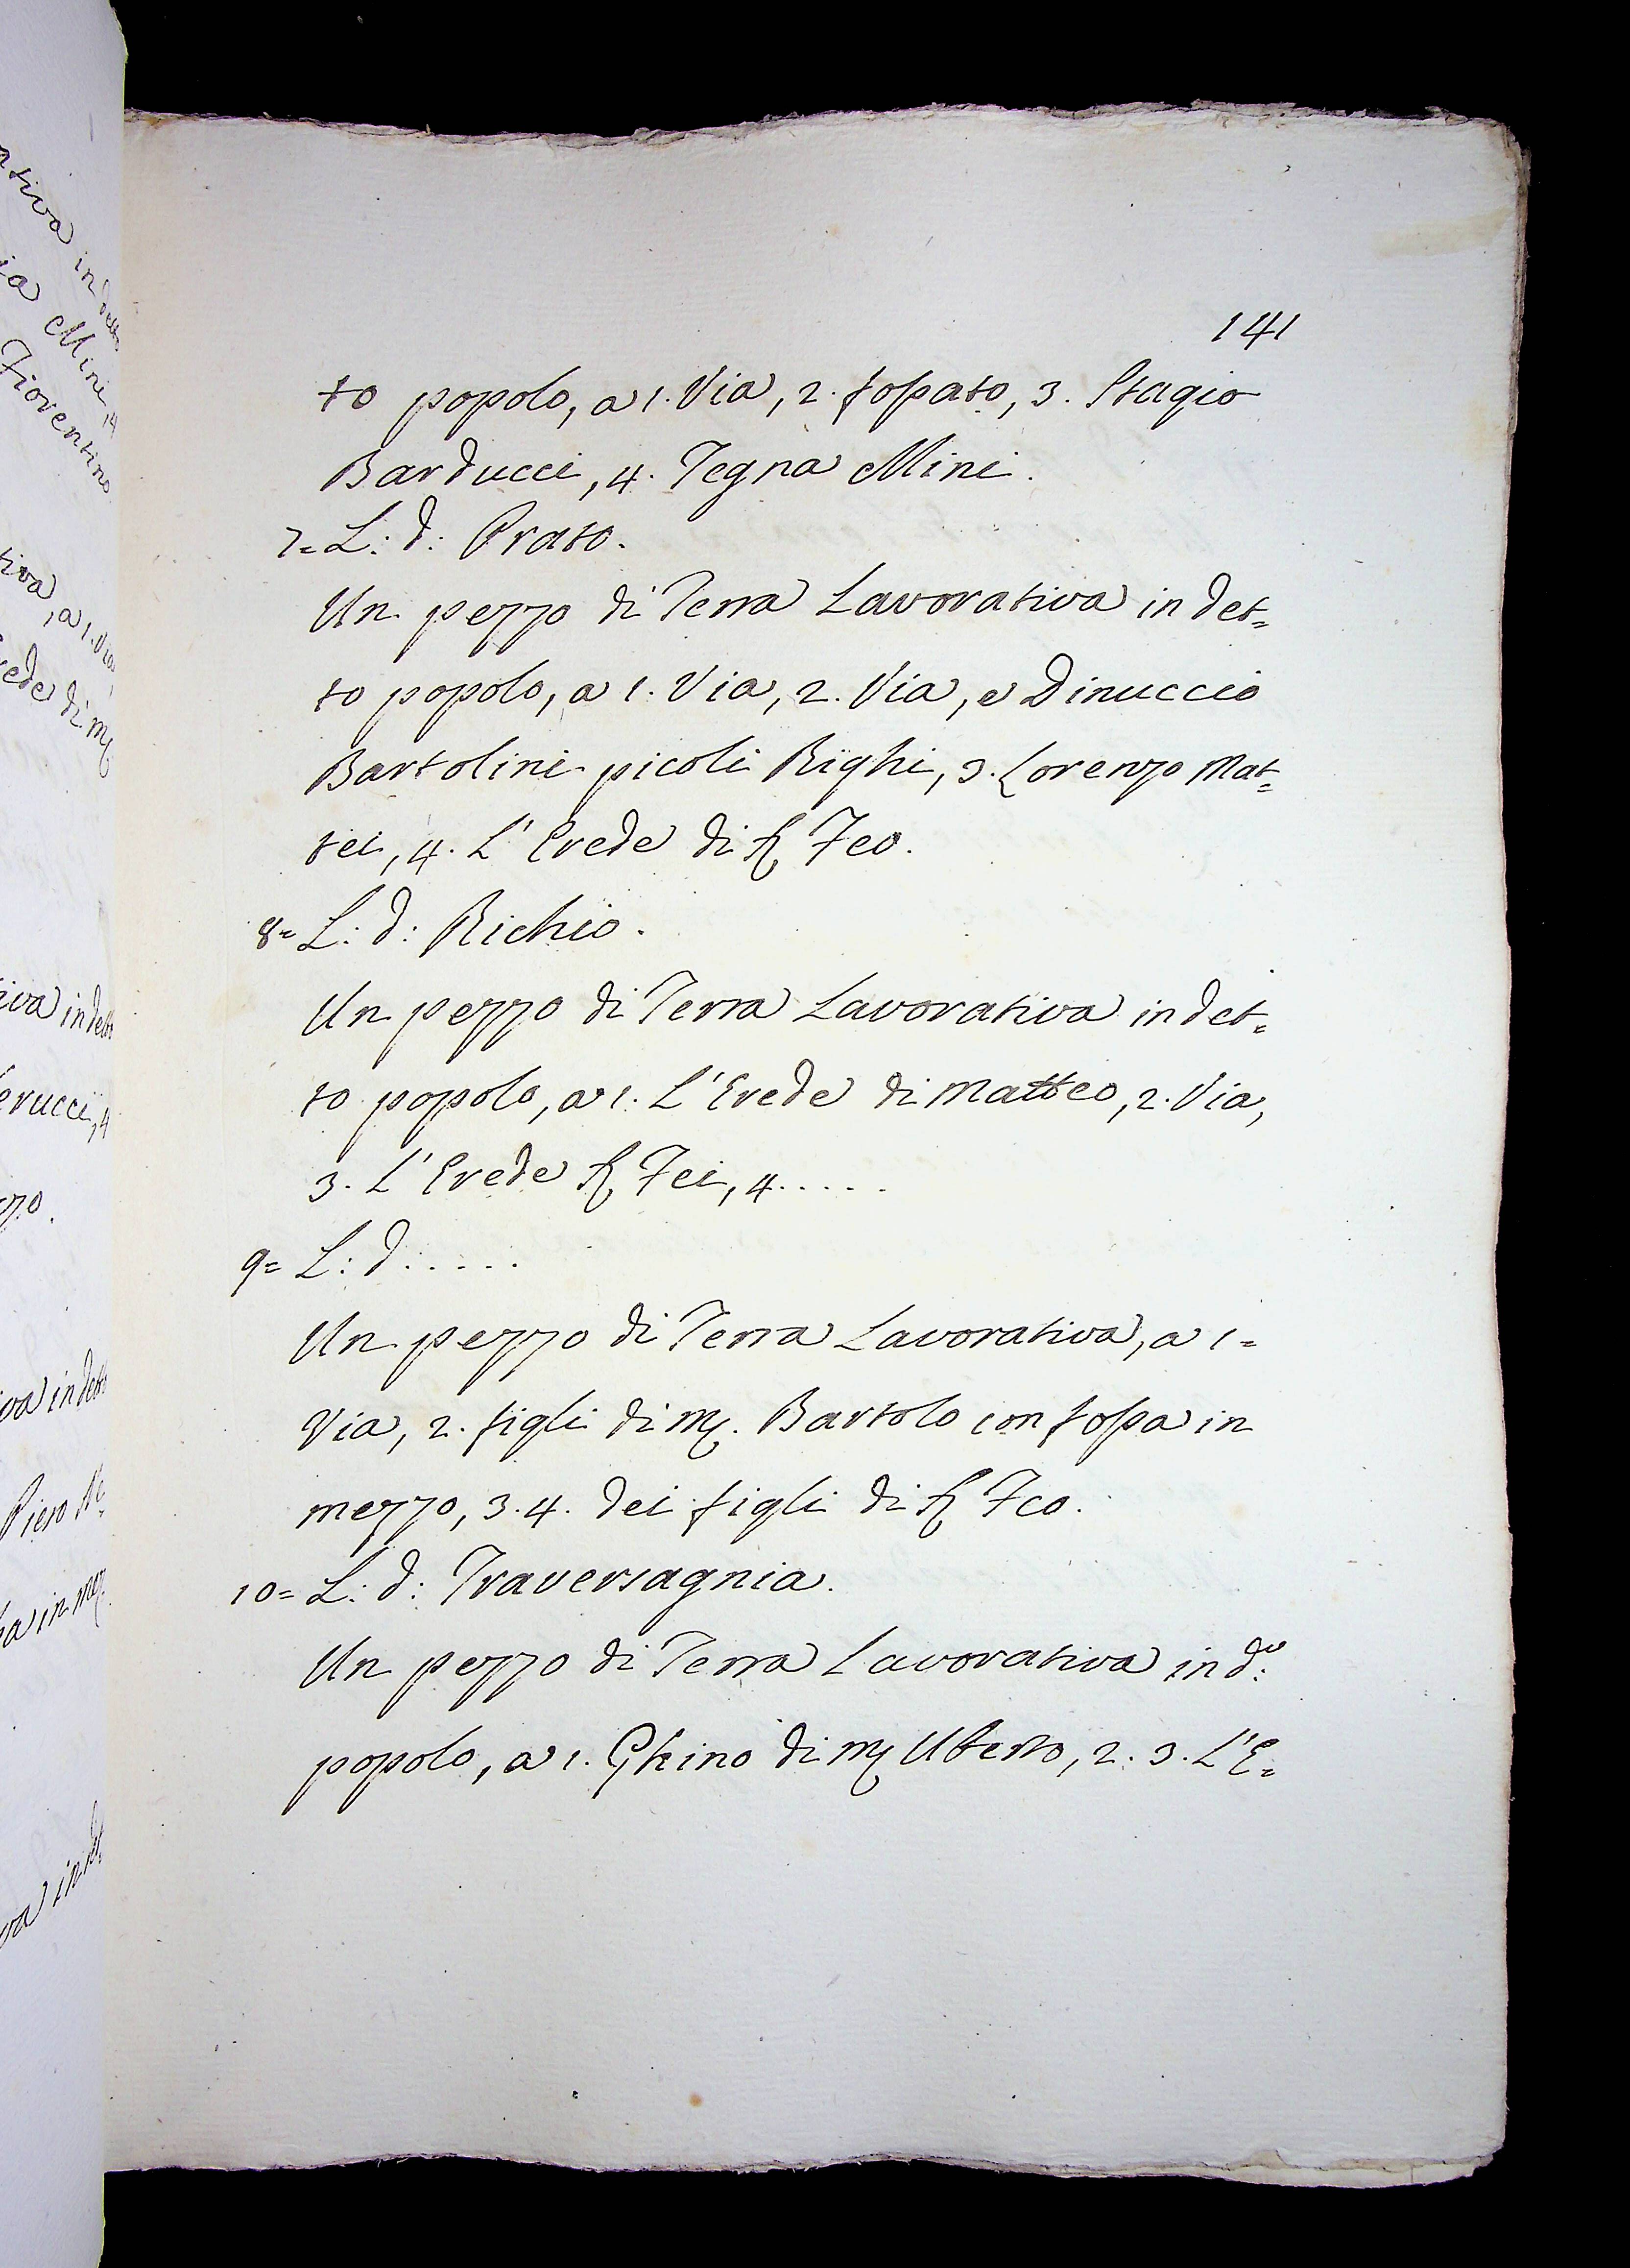 141
to popolo, a 1. Via, 2. fossato, 3. Stagio
Barducci, 4. Tegna Mini.
7= L: d: Prato.
Un pezzo di Terra Lavorativa in det=
to popolo, a 1. Via, 2. Via, e Dinuccio
Bartolini picoli Righi, 3. Lorenzo Mat=
tei, 4. L'Erede di Feo.
8= L: d: Richio.
Un pezzo di Terra Lavorativa in det=
to popolo, a 1. L'Erede di Matteo, 2. Via,
3. L'Erede Fei, 4.....
9= L: d:.....
Un pezzo di Terra Lavorativa, a 1=
Via, 2. figli di M. Bartolo con fossa in
mezzo, 3. 4. dei figli di Feo.
10= L: d: Traversagnia.
Un pezzo di Terra Lavorativa in d:o
popolo, a 1. Ghino di M Uberto, 2. 3. L'E=